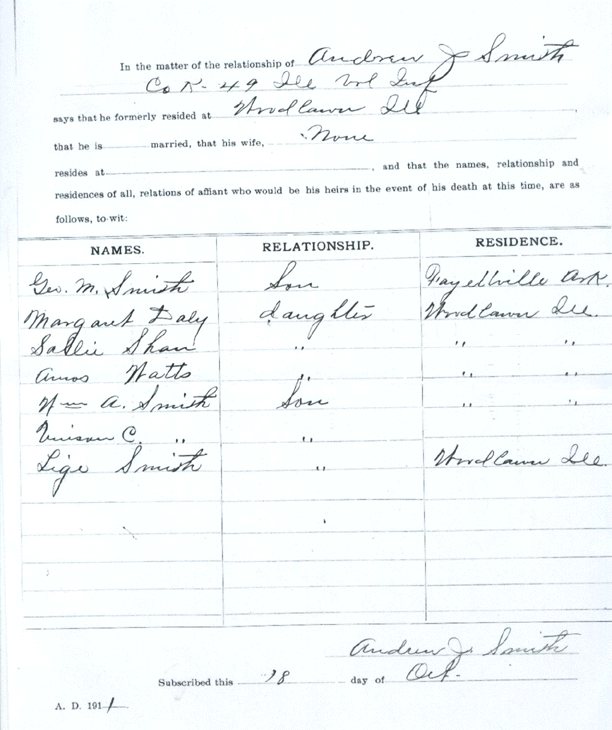 In the matter of the relationship of Andrew J Smith
Co K - 49 Ill Vol Inf
says that he formerly resided at Woodlawn Ill
that he is married, that his wife, None
resides at , and that the names, relationship and
residences of all, relations of affiant who would be his heirs in the event of his death at this time, are as
follows, to-wit:
NAMES. RELATIONSHIP. RESIDENCE.
Geo. M. Smith Son Fayettville Ark.
Margaret Daly daughter Woodlawn Ill.
Sallie Shaw " " "
Amos Watts " " "
Wm A. Smith Son " "
Vinson C. " "
Lige Smith " Woodlawn Ill.
Andrew J. Smith
Subscribed this 18 day of Oct.
A. D. 1911